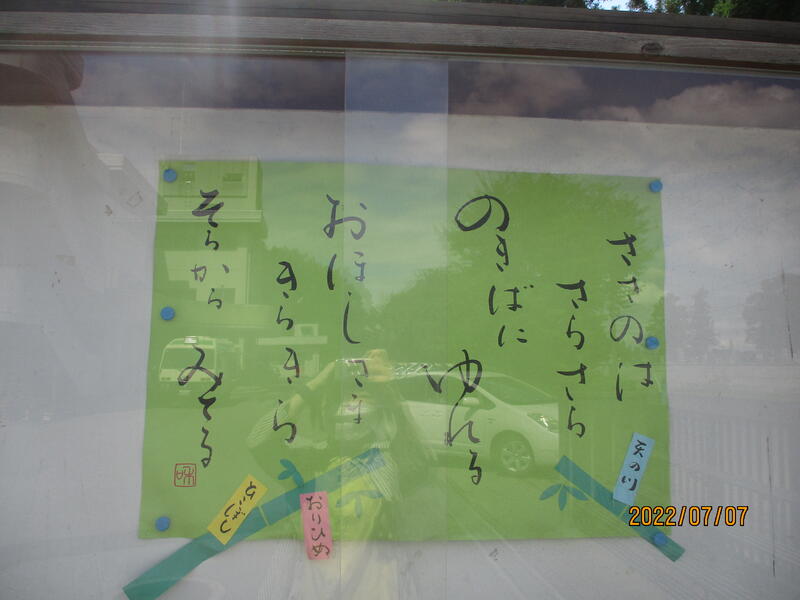 ささのは
さらさら
のきばに
ゆれる
おほしさま
きらきら
そらから
みてる
天の川
おりひめ
2022/07/07